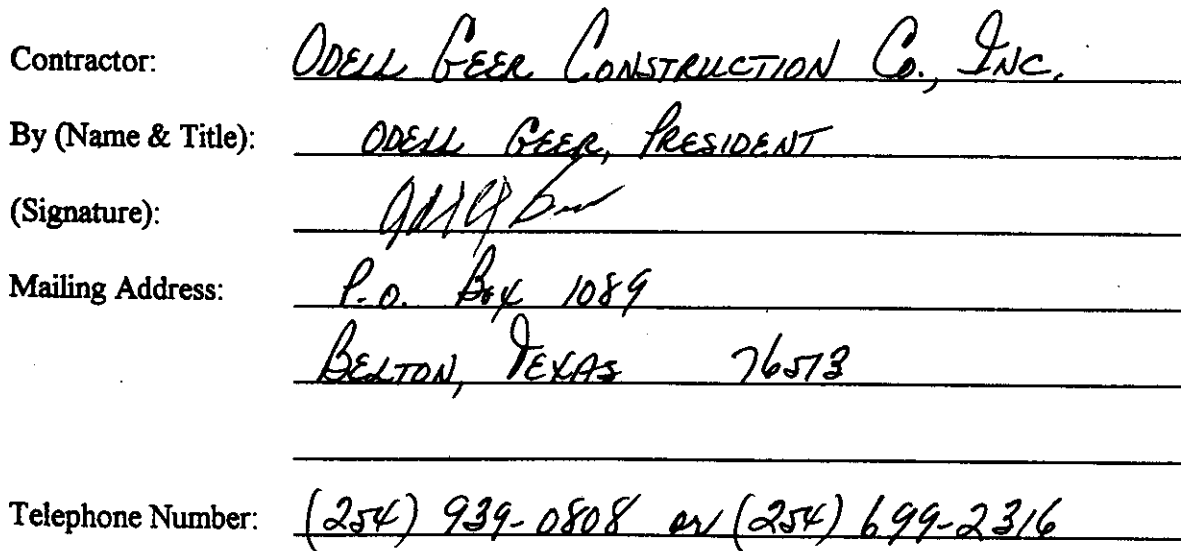 Contractor: ODELL GEER CONSTRUCTION CO., INC.
By (Name & Title): ODELL GEER, PRESIDENT
(Signature):
Mailing Address: P.O. Box 1089
BELTON, TEXAS 76513
Telephone Number: (254) 939-0808 or (254) 699-2316